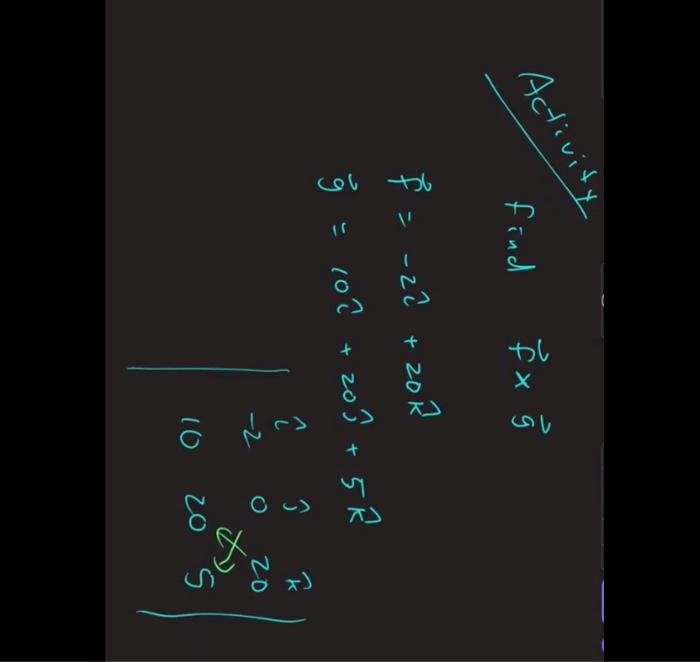 Activity
find f⃗ × g⃗
f⃗ = -2î + 20k̂
g⃗ = 10î + 20ĵ + 5k̂
î ĵ k̂
-2 0 20
10 20 5